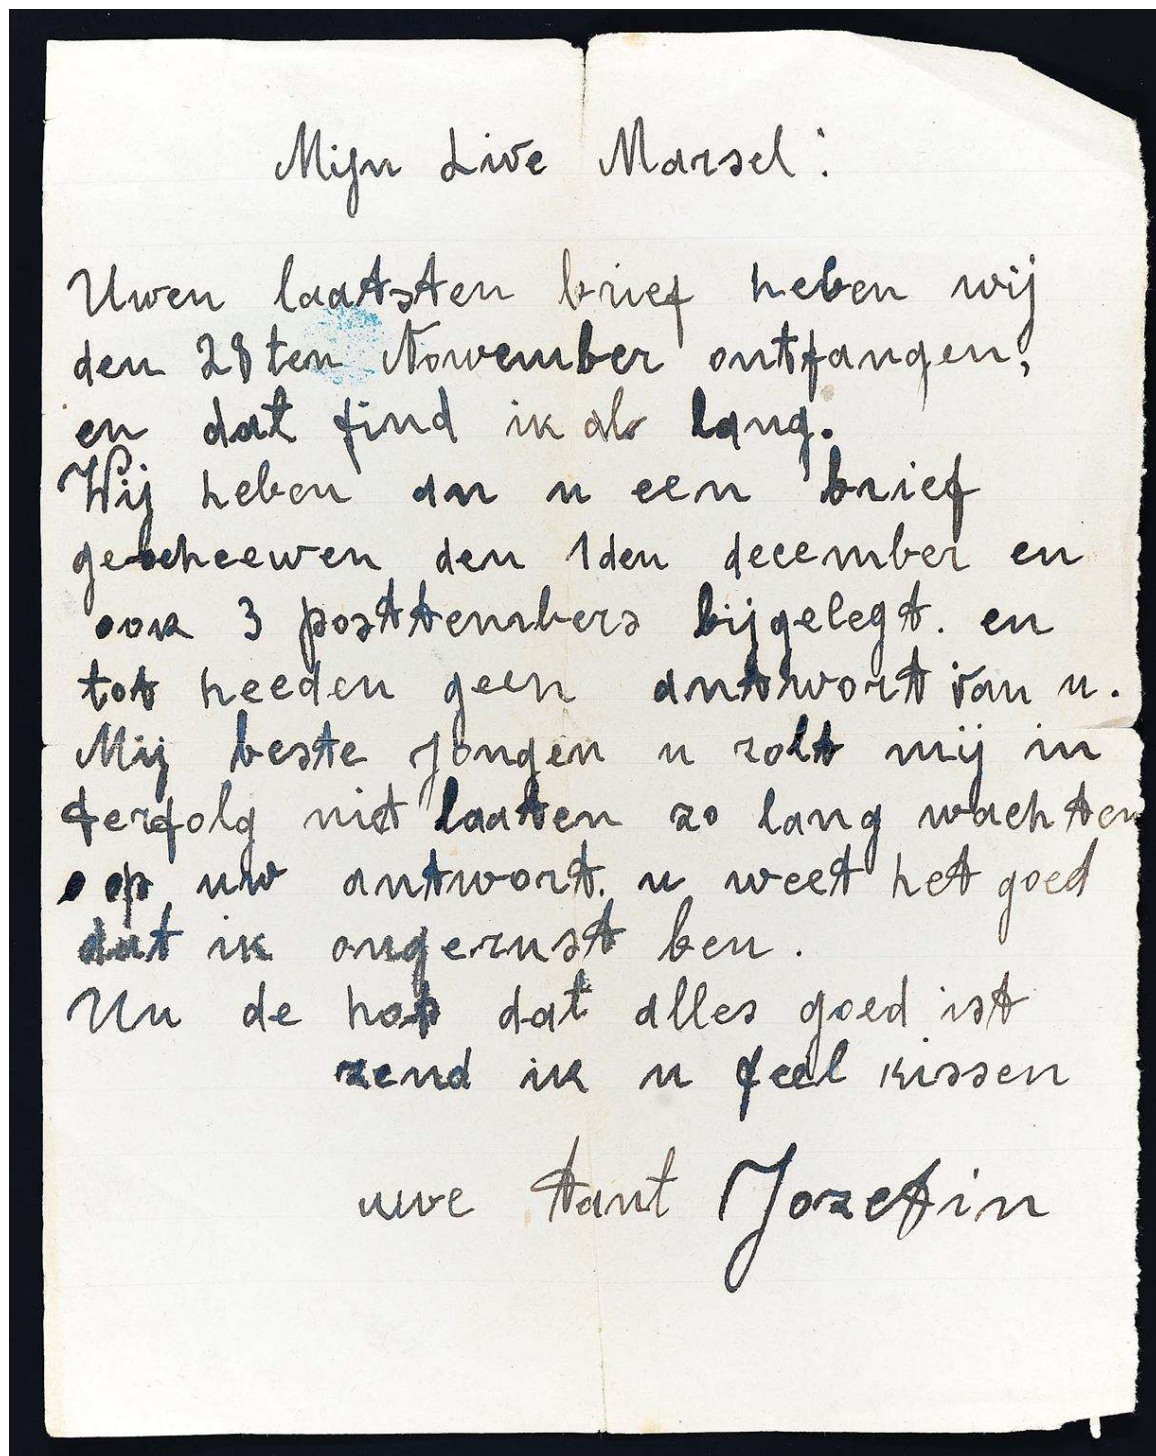 Mijn Live Marsel:
Uwen laatsten brief heben wij
den 28ten November ontfangen,
en dat find ik als lang.
Wij heben an u een brief
gescheewen den 1den december en
ook 3 posttembers bijgelegt. en
tot heeden geen antwort van u.
Mij beste Jongen u zolt mij in
ferfolg niet laaten zo lang wachten
op uw antwort. u weet het goed
dat ik ongerust ben.
Un de hop dat alles goed ist
zend ik u feel kissen
uwe tant Jozefin